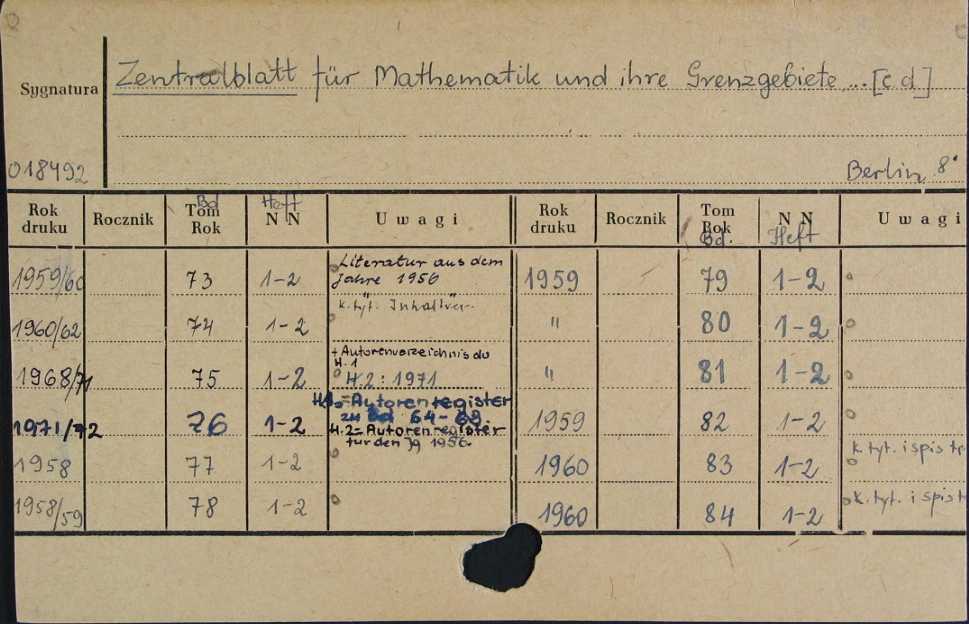 Sygnatura
Zentralblatt für Mathematik und ihre Grenzgebiete ... [c d]
018492
Berlin 8°
Rok druku Rocznik Tom Rok Bd N N Heft Uwagi Rok druku Rocznik Tom Rok Bd. N N Heft Uwagi
1959/60 73 1-2 Literatur aus dem Jahre 1956 1959 79 1-2
k. tyt. Inhaltver.
1960/62 74 1-2 " 80 1-2
+ Autorenverzeichnis do H. 1
1968/71 75 1-2 H.2: 1971 " 81 1-2
= Autorenregister
zu Bd 64-69
1971/72 76 1-2 H.2= Autorenregister 1959 82 1-2
fur den Jg 1956.
1958 77 1-2 1960 83 1-2 k. tyt. i spis
1958/59 78 1-2 1960 84 1-2 k. tyt. i spis